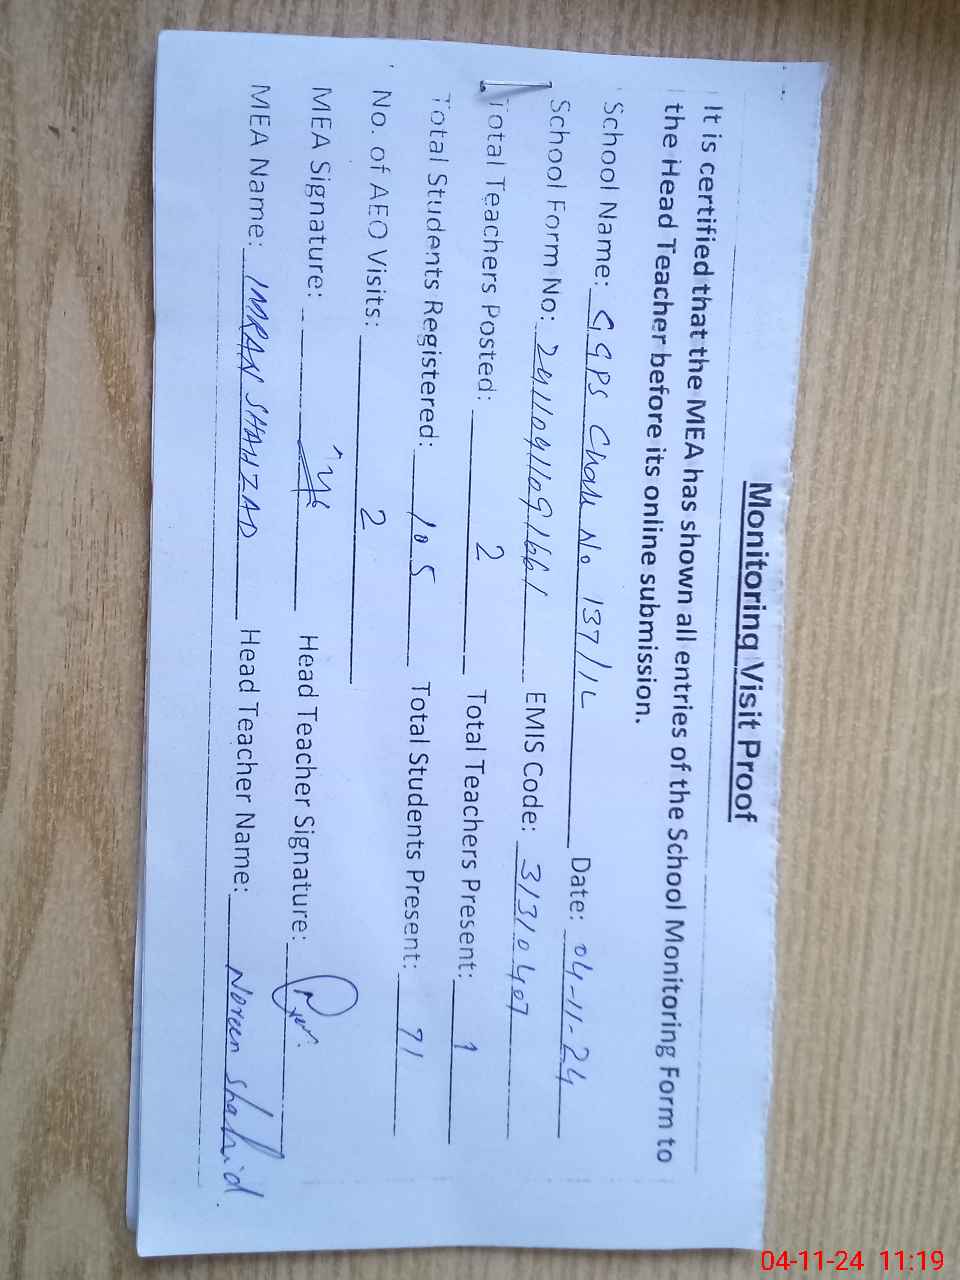 Monitoring Visit Proof
It is certified that the MEA has shown all entries of the School Monitoring Form to
the Head Teacher before its online submission.
School Name: GGPS Chak No 137/1L Date: 04-11-24
School Form No: EMIS Code: 31310407
Total Teachers Posted: 2 Total Teachers Present: 1
Total Students Registered: 105 Total Students Present: 71
No. of AEO Visits: 2
MEA Signature: Head Teacher Signature:
MEA Name: IMRAN SHAHZAD Head Teacher Name: Noreen Shahid.
04-11-24 11:19